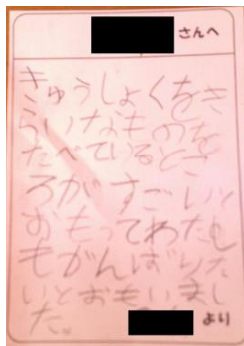 さんへ
きゅうしょくをき
らいなものを
たべているとこ
ろがすごいと
おもってわたし
もがんばりた
いとおもいまし
た。
より